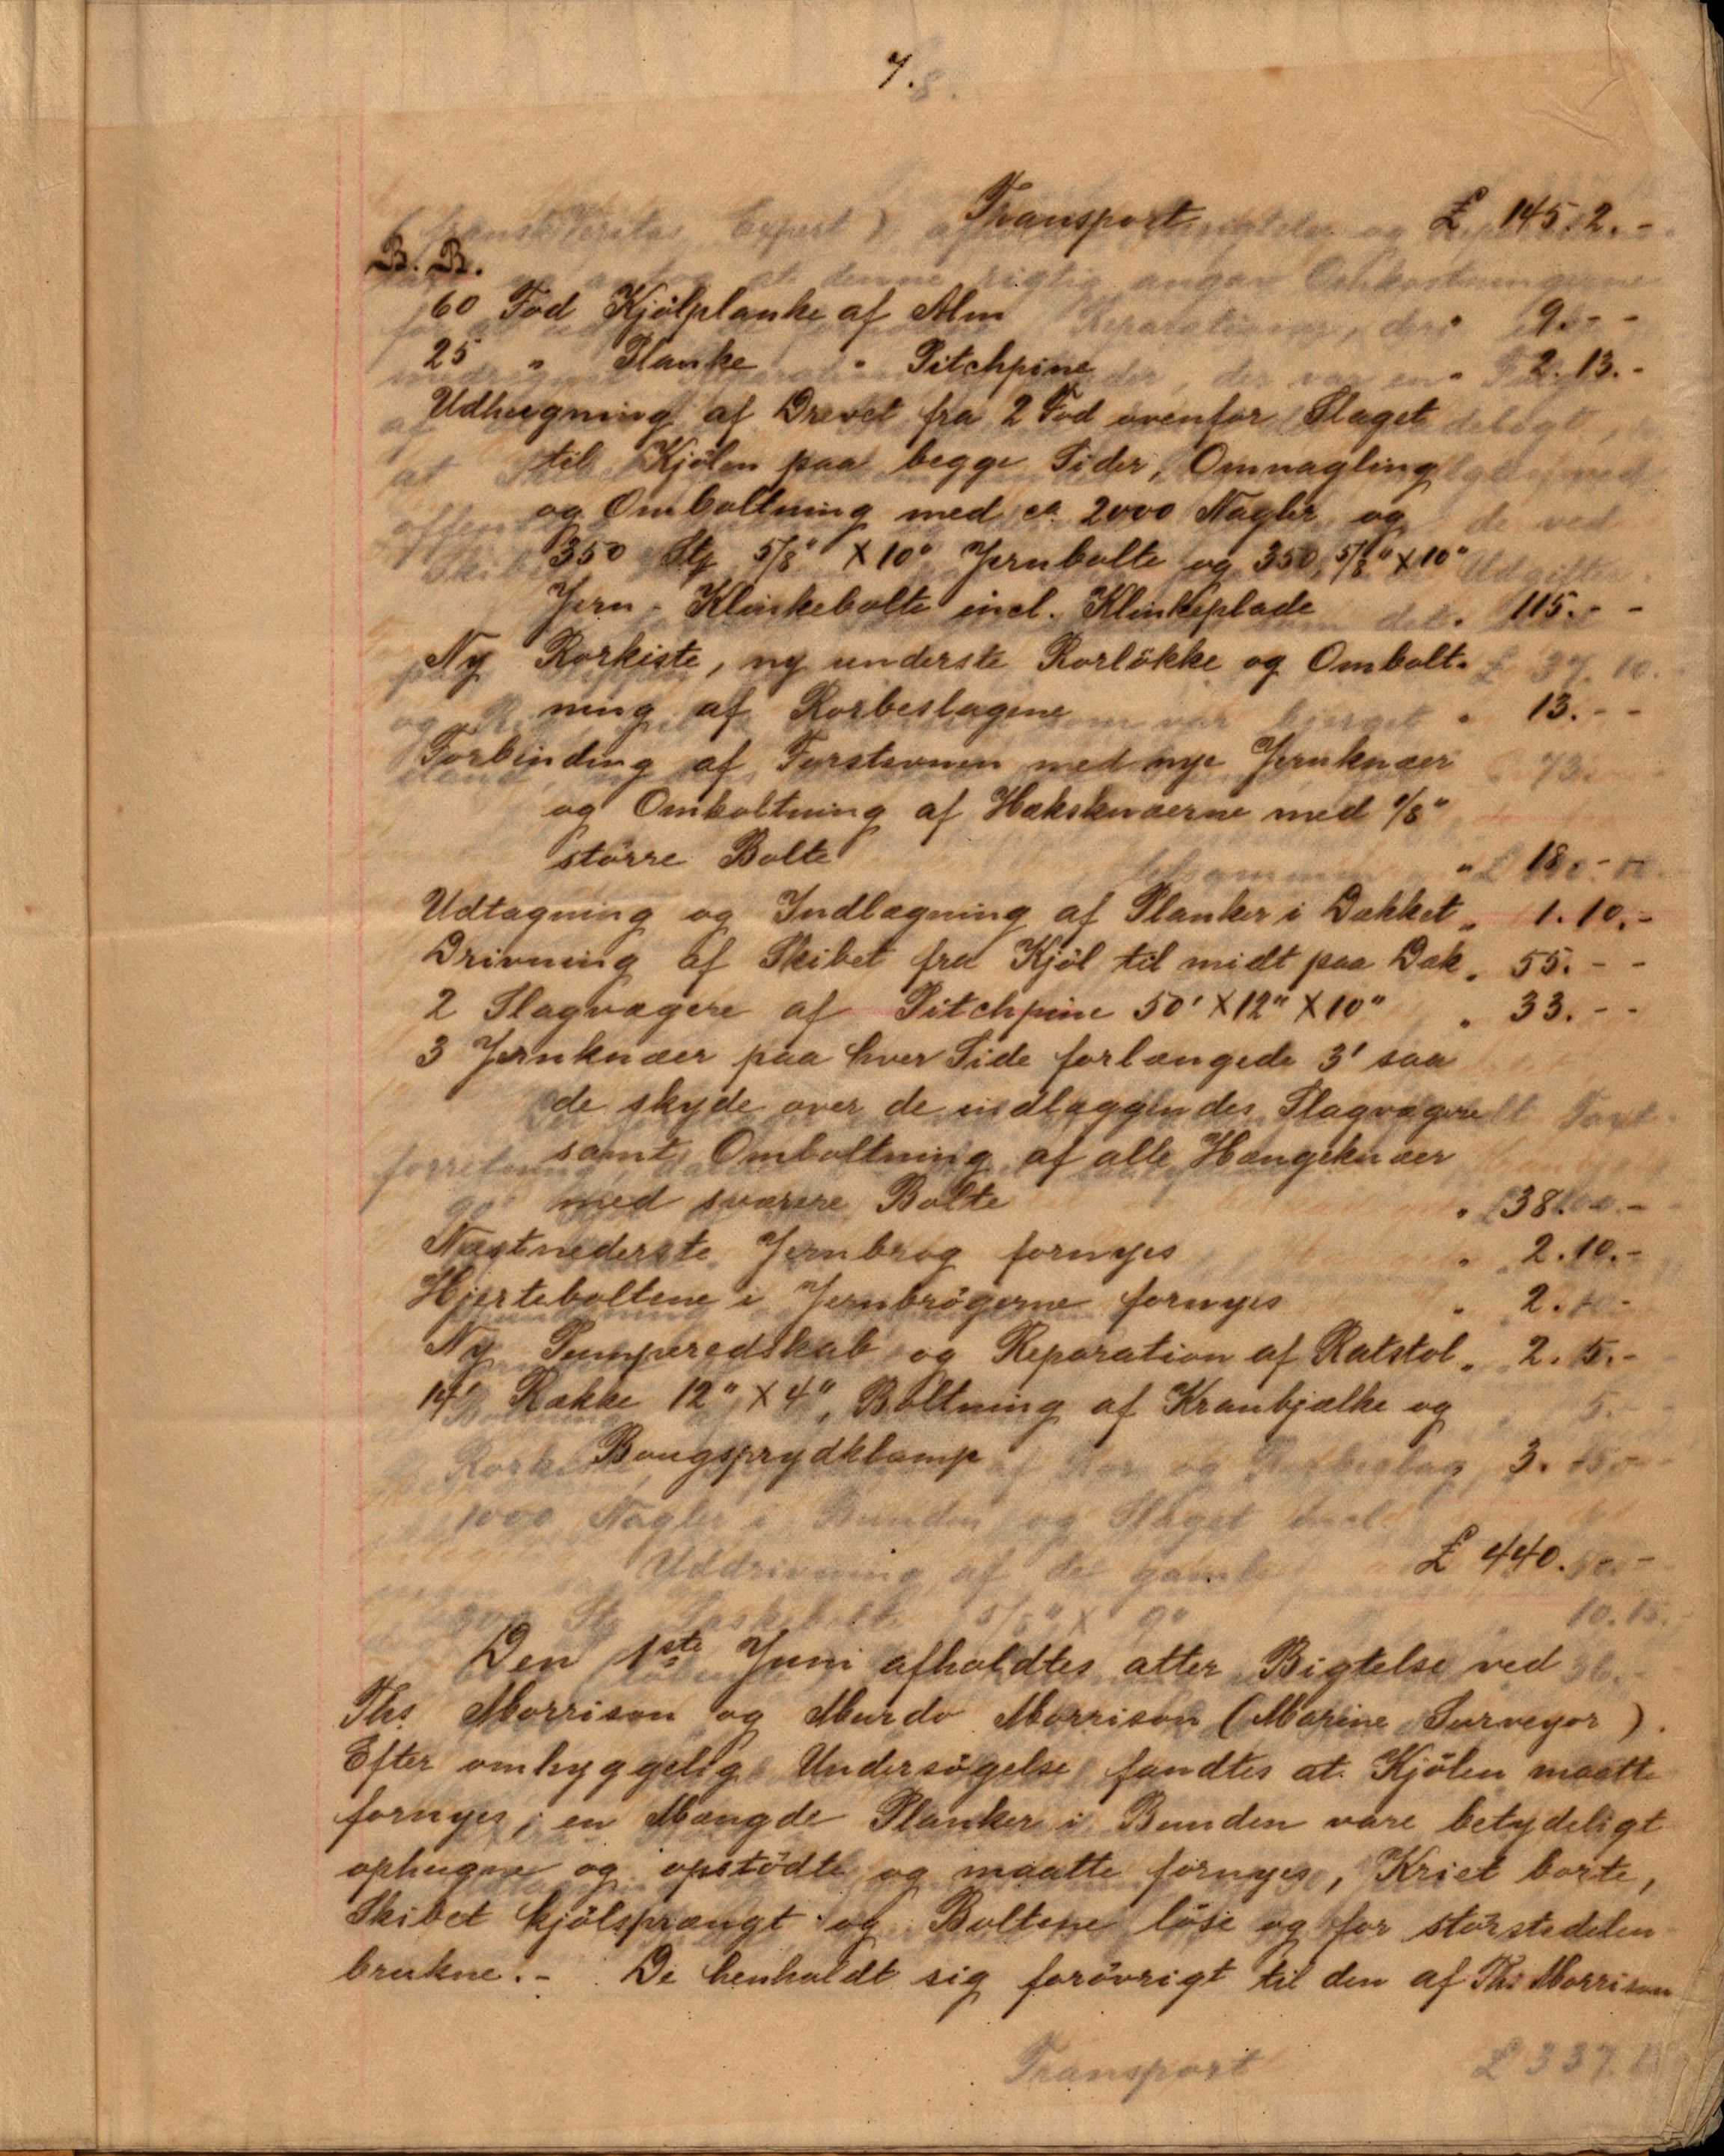 7.
Transport £ 145. 2. -
B. B.
60 Fod Kjölplanke af Alm " 9. - -
25 " Planke " Pitchpine " 2. 13. -
Udhugning af Drevet fra 2 Fod ovenfor Slaget
til Kjölen paa begge Sider, Omnagling
og Omboltning med ca. 2000 Nagler og
350 Stg 5/8" X 10" Jernbolte og 350, 5/8" X 10"
Jern-Klinkebolte incl. Klinkeplade " 115. - -
Ny Rorkiste, ny underste Rorlökke og Ombolt-
ning af Rorbeslagene " 13. - -
Forbinding af Forstevnen med nye Jernknæer
og Omboltning af Hækskneerne med 1/8"
större Bolte " 18. - -
Udtagning og Indlægning af Planker i Dækket " 1. 10. -
Drivning af Skibet fra Kjöl til midt paa Dæk " 55. - -
2 Slagvægere af Pitchpine 50' X 12" X 10" " 33. - -
3 Jernknæer paa hver Side forlængede 3' saa
de skyde over de indlæggendes Slagvægere
samt Omboltning af alle Hængeknæer
med sværere Bolte " 38. - -
Næstnederste Jernbrog fornyes " 2. 10. -
Hjerteboltene i Jernbrögerne fornyes " 2. - -
Ny Pumperedskab og Reparation af Ratstol " 2. 5. -
14' Række 12" X 4", Boltning af Kranbjælke og
Bougsprydklamp 3. - -
£ 440. - -
Den 1ste Juni afholdtes atter Bigtelse ved
Ths. Morrison og Murdo Morrison (Marine Surveyor).
Efter omhyggelig Undersögelse fandtes at Kjölen maatte
fornyes; en Mængde Planker i Bunden vare betydeligt
ophugne og opstödte og maatte fornyes, Kriet borte,
Skibet kjölsprængt og Boltene löse og for störstedelen
brukne. - De henholdt sig forövrigt til den af Ths. Morrison